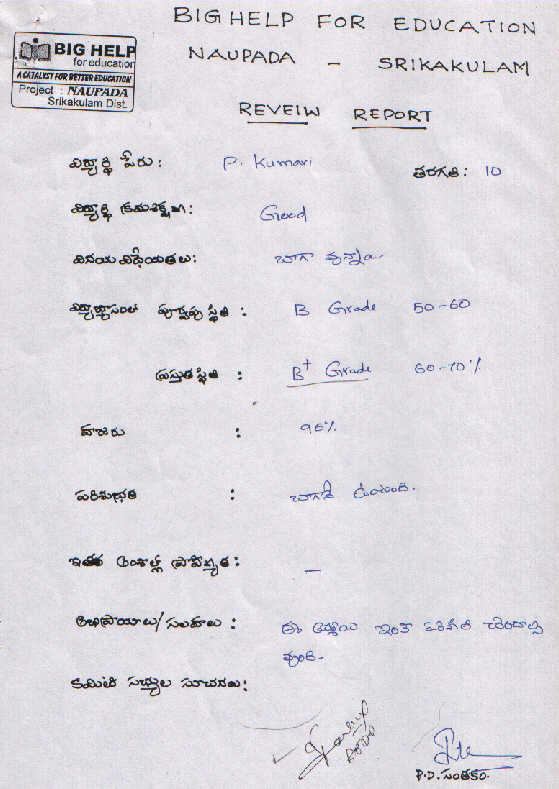 BIG HELP FOR EDUCATION
NAUPADA - SRIKAKULAM
BIG HELP
for education
A CATALYST FOR BETTER EDUCATION
Project : NAUPADA
Srikakulam Dist.
REVEIW REPORT
విద్యార్థి పేరు : P. Kumari తరగతి : 10
విద్యార్థి క్రమశిక్షణ : Good
వినయ విధేయతలు : బాగా వున్నాయి
విద్యాభ్యాసంలో పూర్వపు స్థితి : B Grade 50-60
ప్రస్తుత స్థితి : B+ Grade 60-70%
హాజరు : 95%
పరిశుభ్రత : బాగానే ఉంటుంది.
ఇతర అంశాల్లో ప్రావీణ్యత : —
అభిప్రాయాలు/సలహాలు : ఈ అమ్మాయి ఇంకా పరిణతి చెందాల్సి
వుంది.
కమిటీ సభ్యుల సూచనలు :
P.D. సంతకం